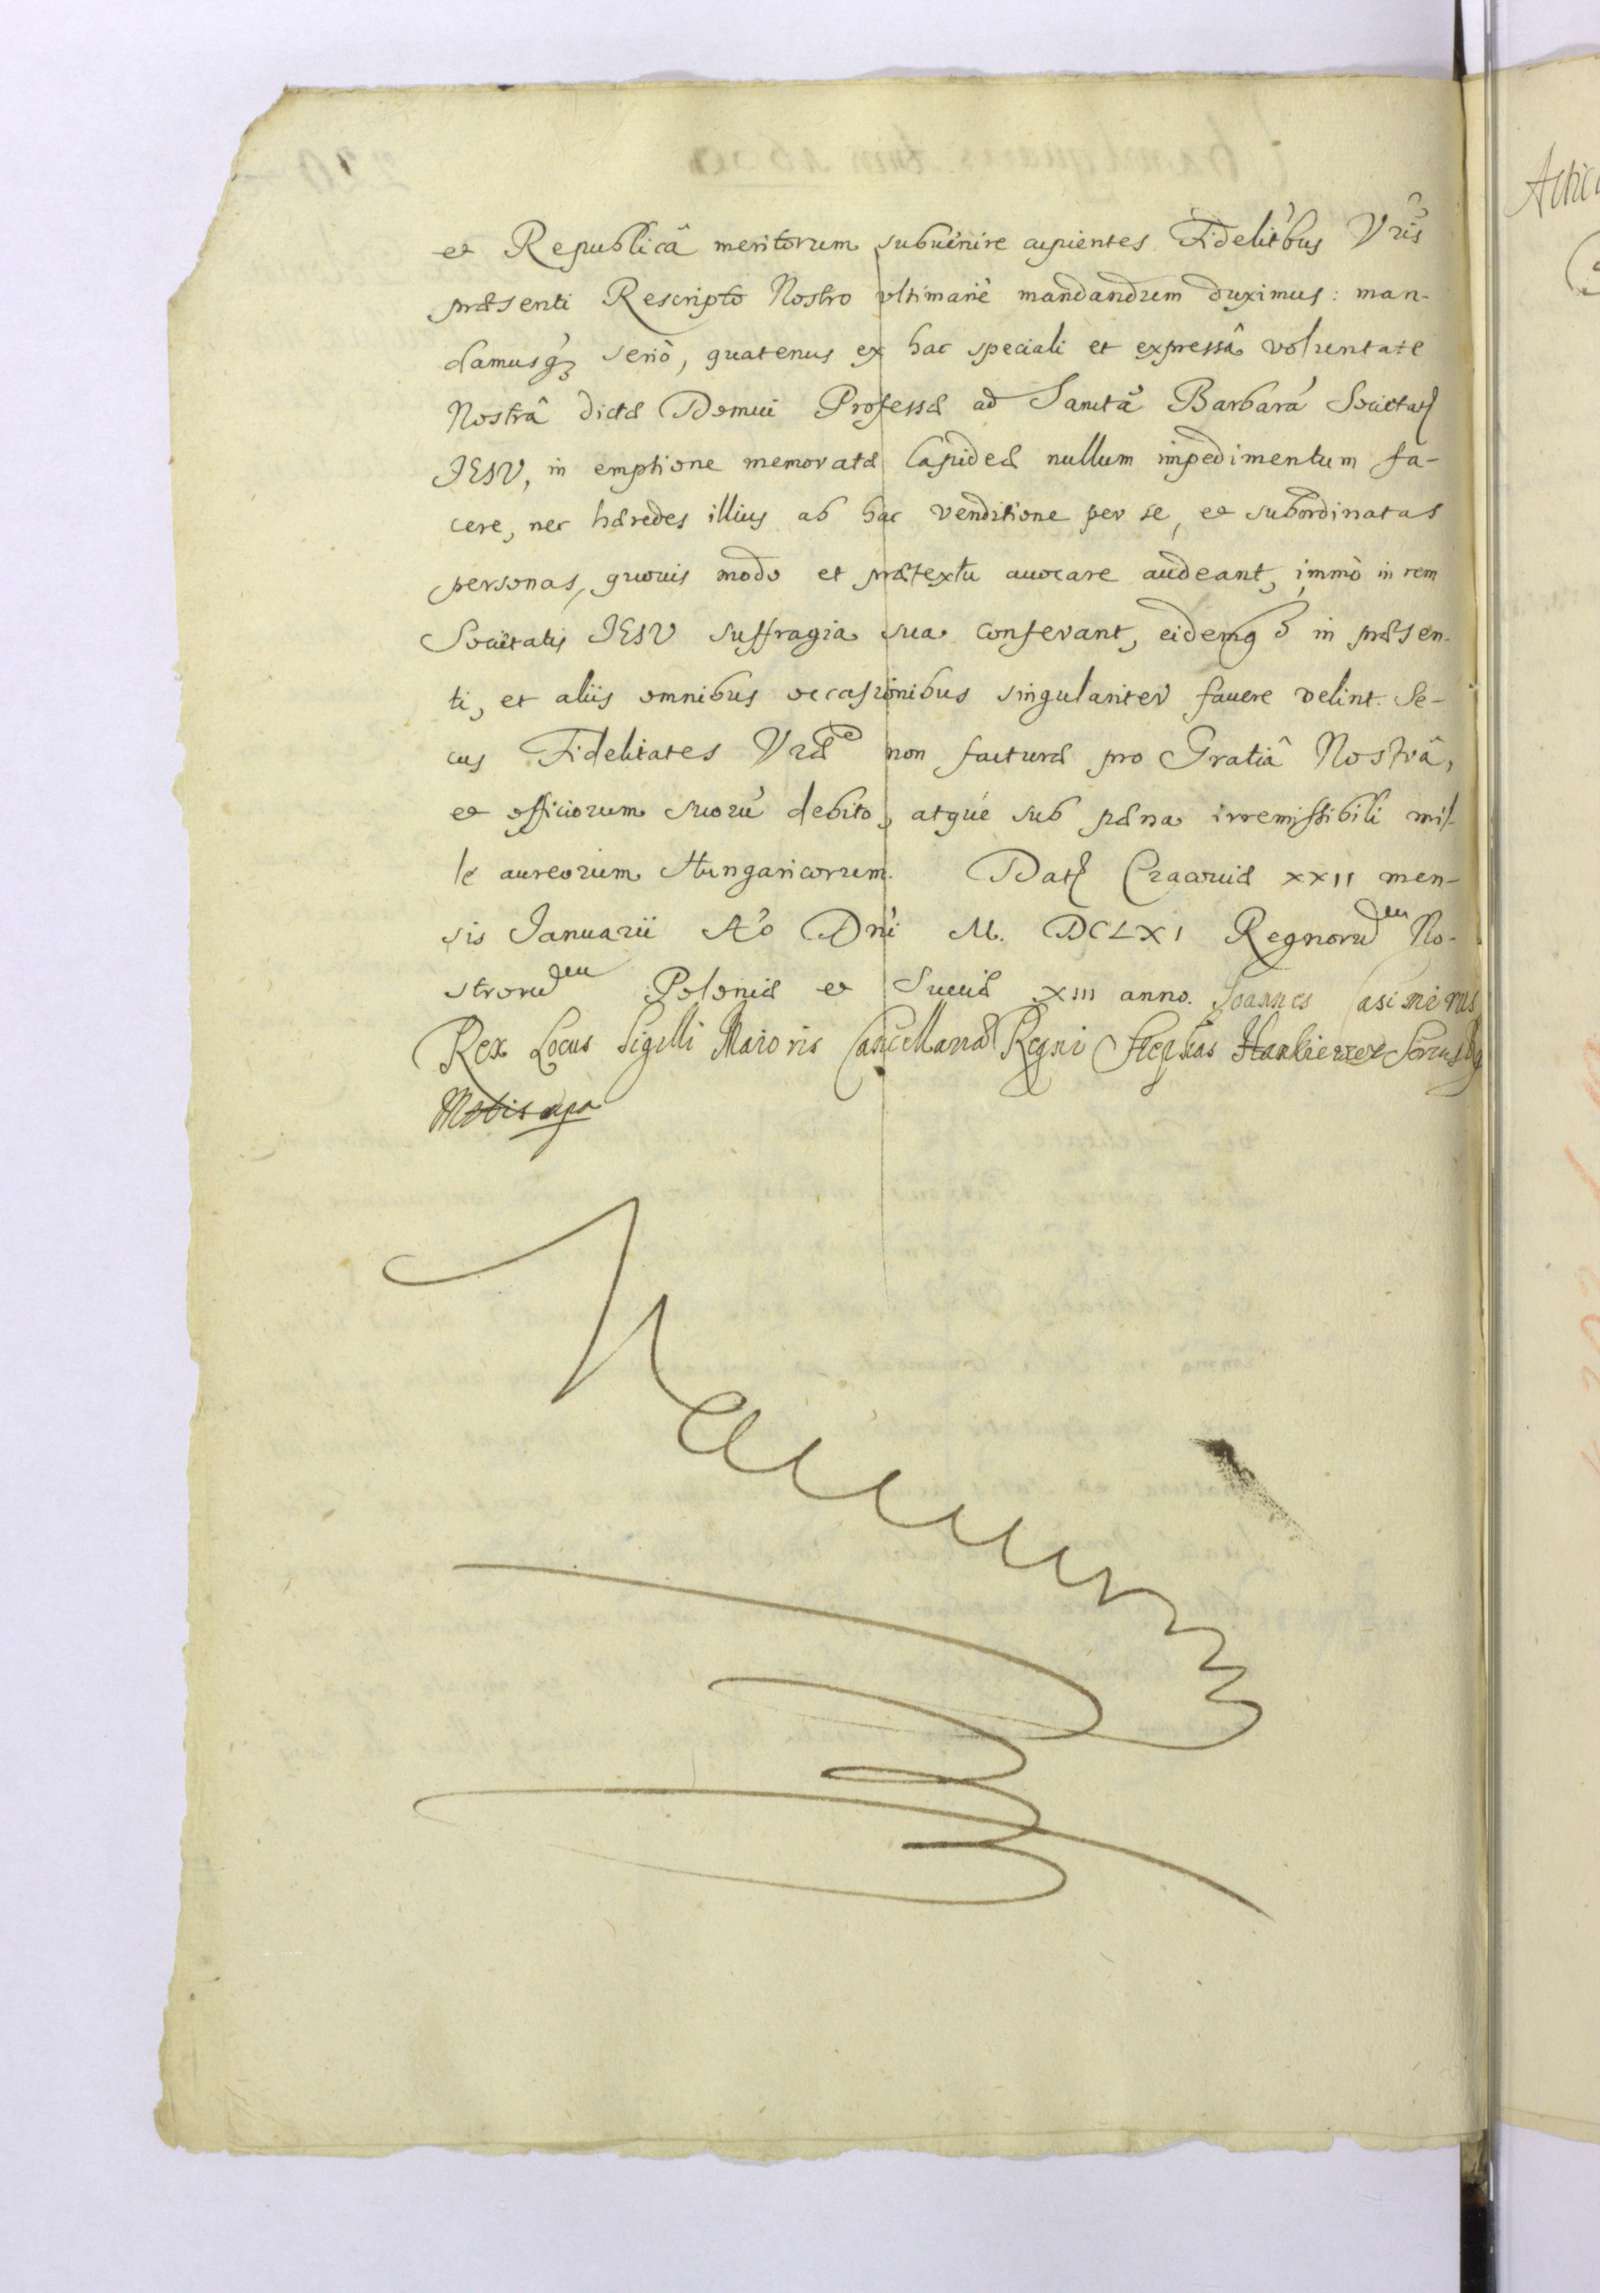 et Republicâ meritorum subvenire cupientes Fidelit̃bus Vr̃is
præsenti Rescripto Nostro vltimariè mandandum duximus: man-
damusq́ꝫ seriò, quatenus ex hac speciali et expressâ voluntate
Nostrâ dictæ Domui Professæ ad Sanctã Barbarã Societatꝭ
JESV, in emptione memoratæ Lapideæ nullum impedimentum fa-
cere, nec hæredes illius ab hac venditione per se, et subordinatas
personas, quovis modo et prætextu avocare audeant, immò in rem
Societatis JESV suffragia sua conferant, eidemqꝫ in præsen-
ti, et aliis omnibus occasionibus singulariter favere velint. Se-
cus Fidelitates Vræ non facturæ pro Gratiâ Nostrâ,
et officiorum suorũ debito, atque sub pæna irremissibili mil-
le aureorum Hungaricorum. Datꝭ Cracoviæ XXII men-
sis Januarii Aõ Dñi M. DCLXI Regnorum No-
strorum Poloniæ et Sueciæ XIII anno. Joannes Casimirus
Rex Locus Sigilli Maioris Cancellariæ Regni Stephas